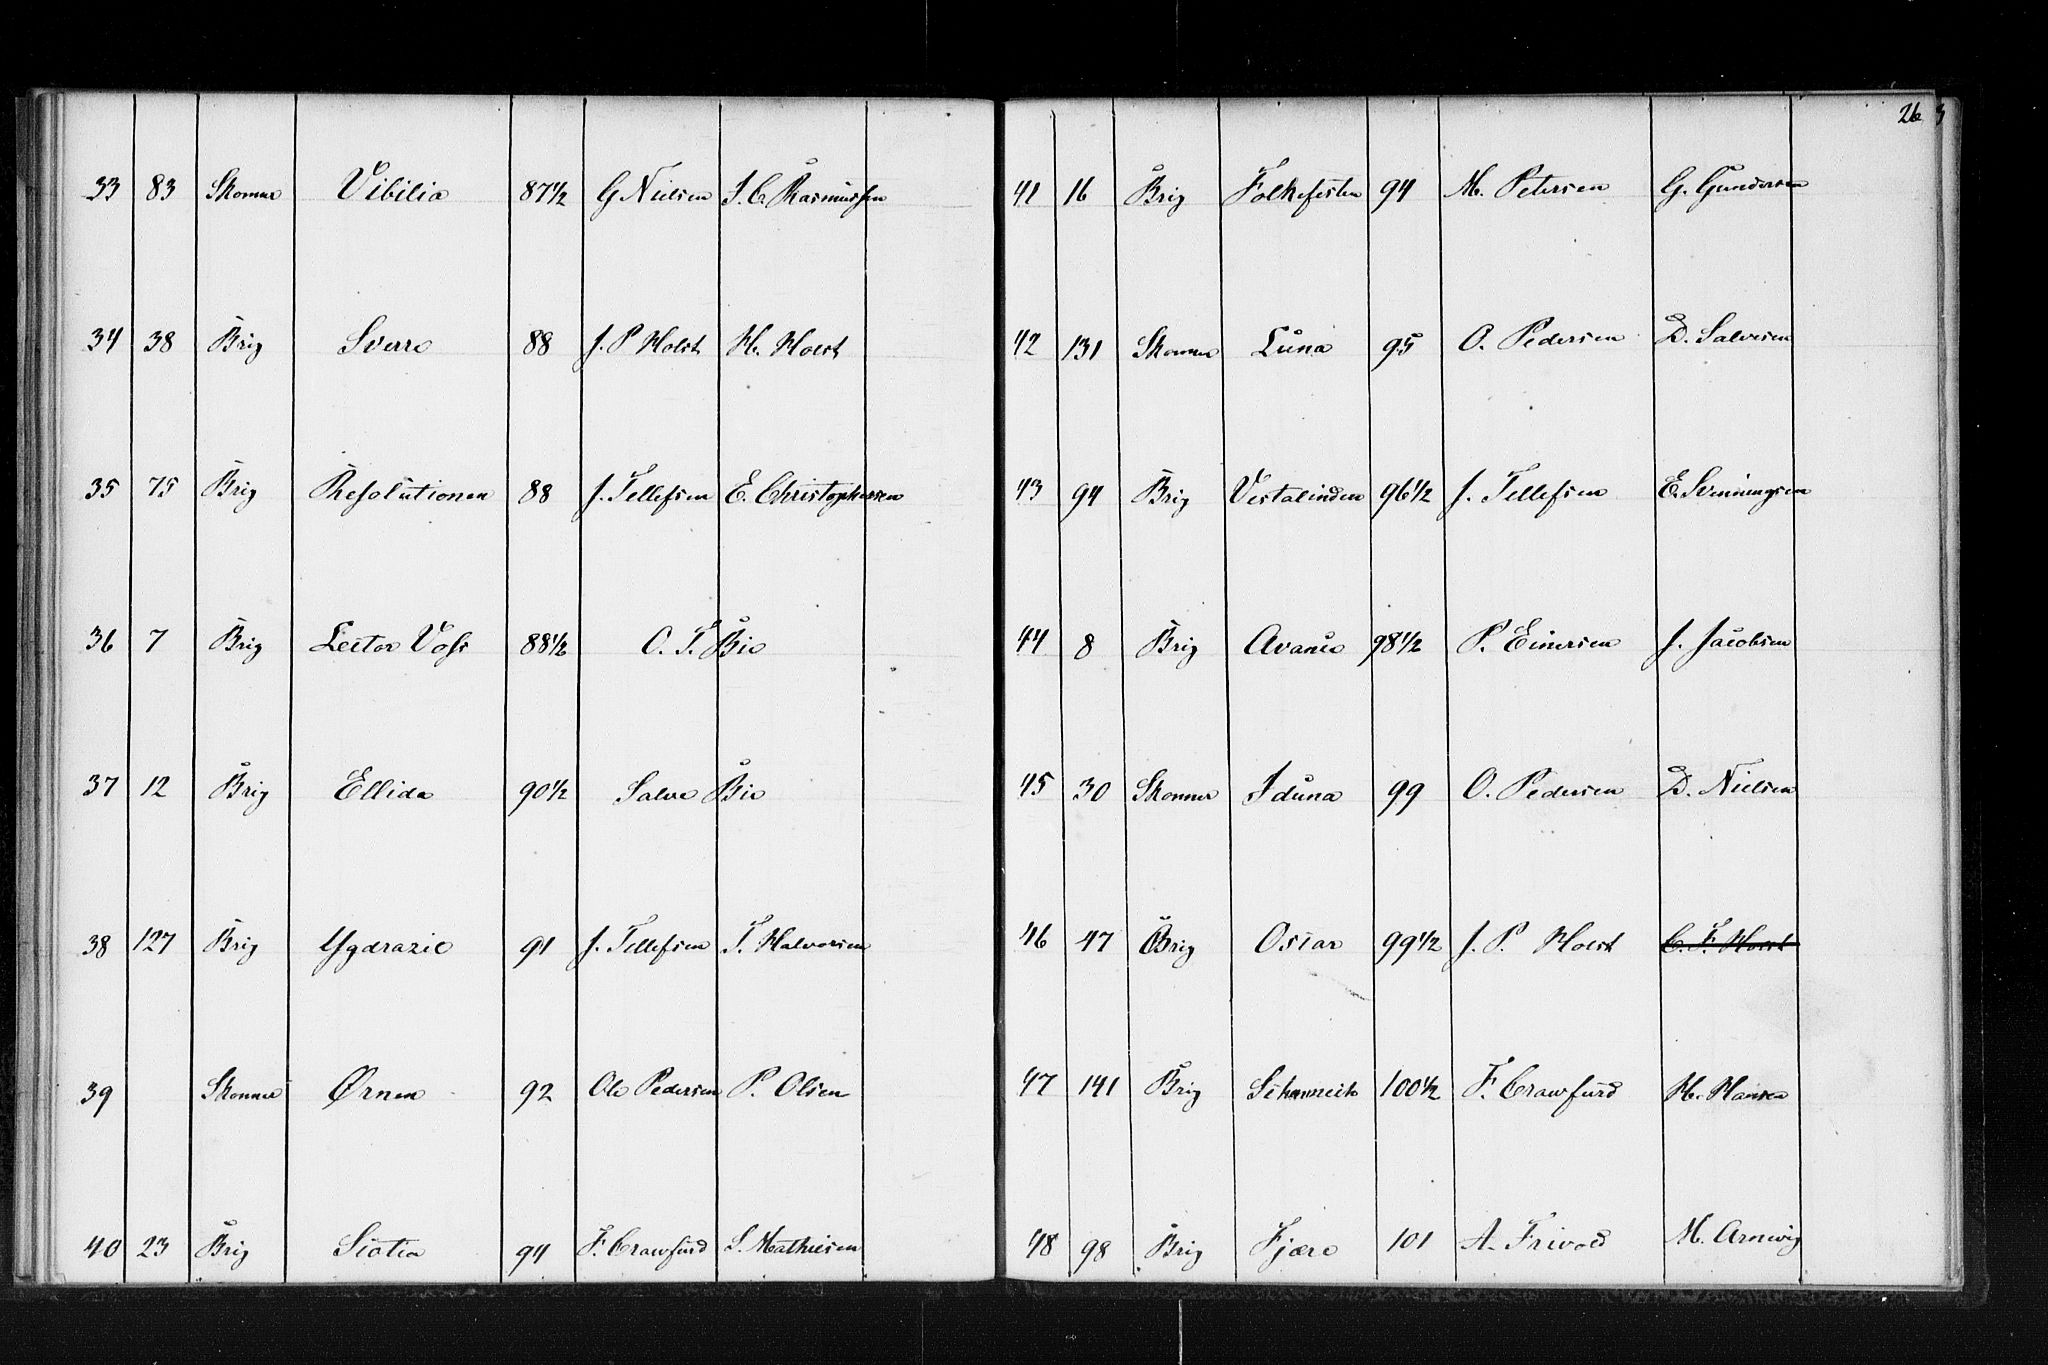 33 83 Skonner Vibilia 87½ G Nielsen J. C. Rasmussen
34 38 Brig Sverre 88 J. P Holst H. Holst
35 75 Brig Resolutionen 88 J. Tellefsen E. Christophersen
36 7 Brig Lector Voss 88½ O. T. Bie
37 12 Brig Ellida 90½ Salve Bie
38 127 Brig Ygdrazie 91 J. Tellefsen T. Halvorsen
39 Skonner Ørnen 92 Ole Pedersen P. Olsen
40 23 Brig Scotia 94 F. Crawfurd S. Mathiesen
26
41 16 Brig Folkefesten 94 M. Petersen G. Gundersen
42 131 Skonner Luna 95 O. Pedersen D. Salvesen
43 94 Brig Vestalinden 96½ J. Tellefsen E. Svenningsen
44 8 Brig Avance 98½ P. Einersen J. Jacobsen
45 30 Skonner Iduna 99 O. Pedersen D. Nielsen
46 47 Brig Oscar 99½ J. P. Holst C. F. Holst
47 141 Brig 100½ F. Crawfurd H. Hansen
48 98 Brig Fjære 101 A. Frivold M. Arnevig